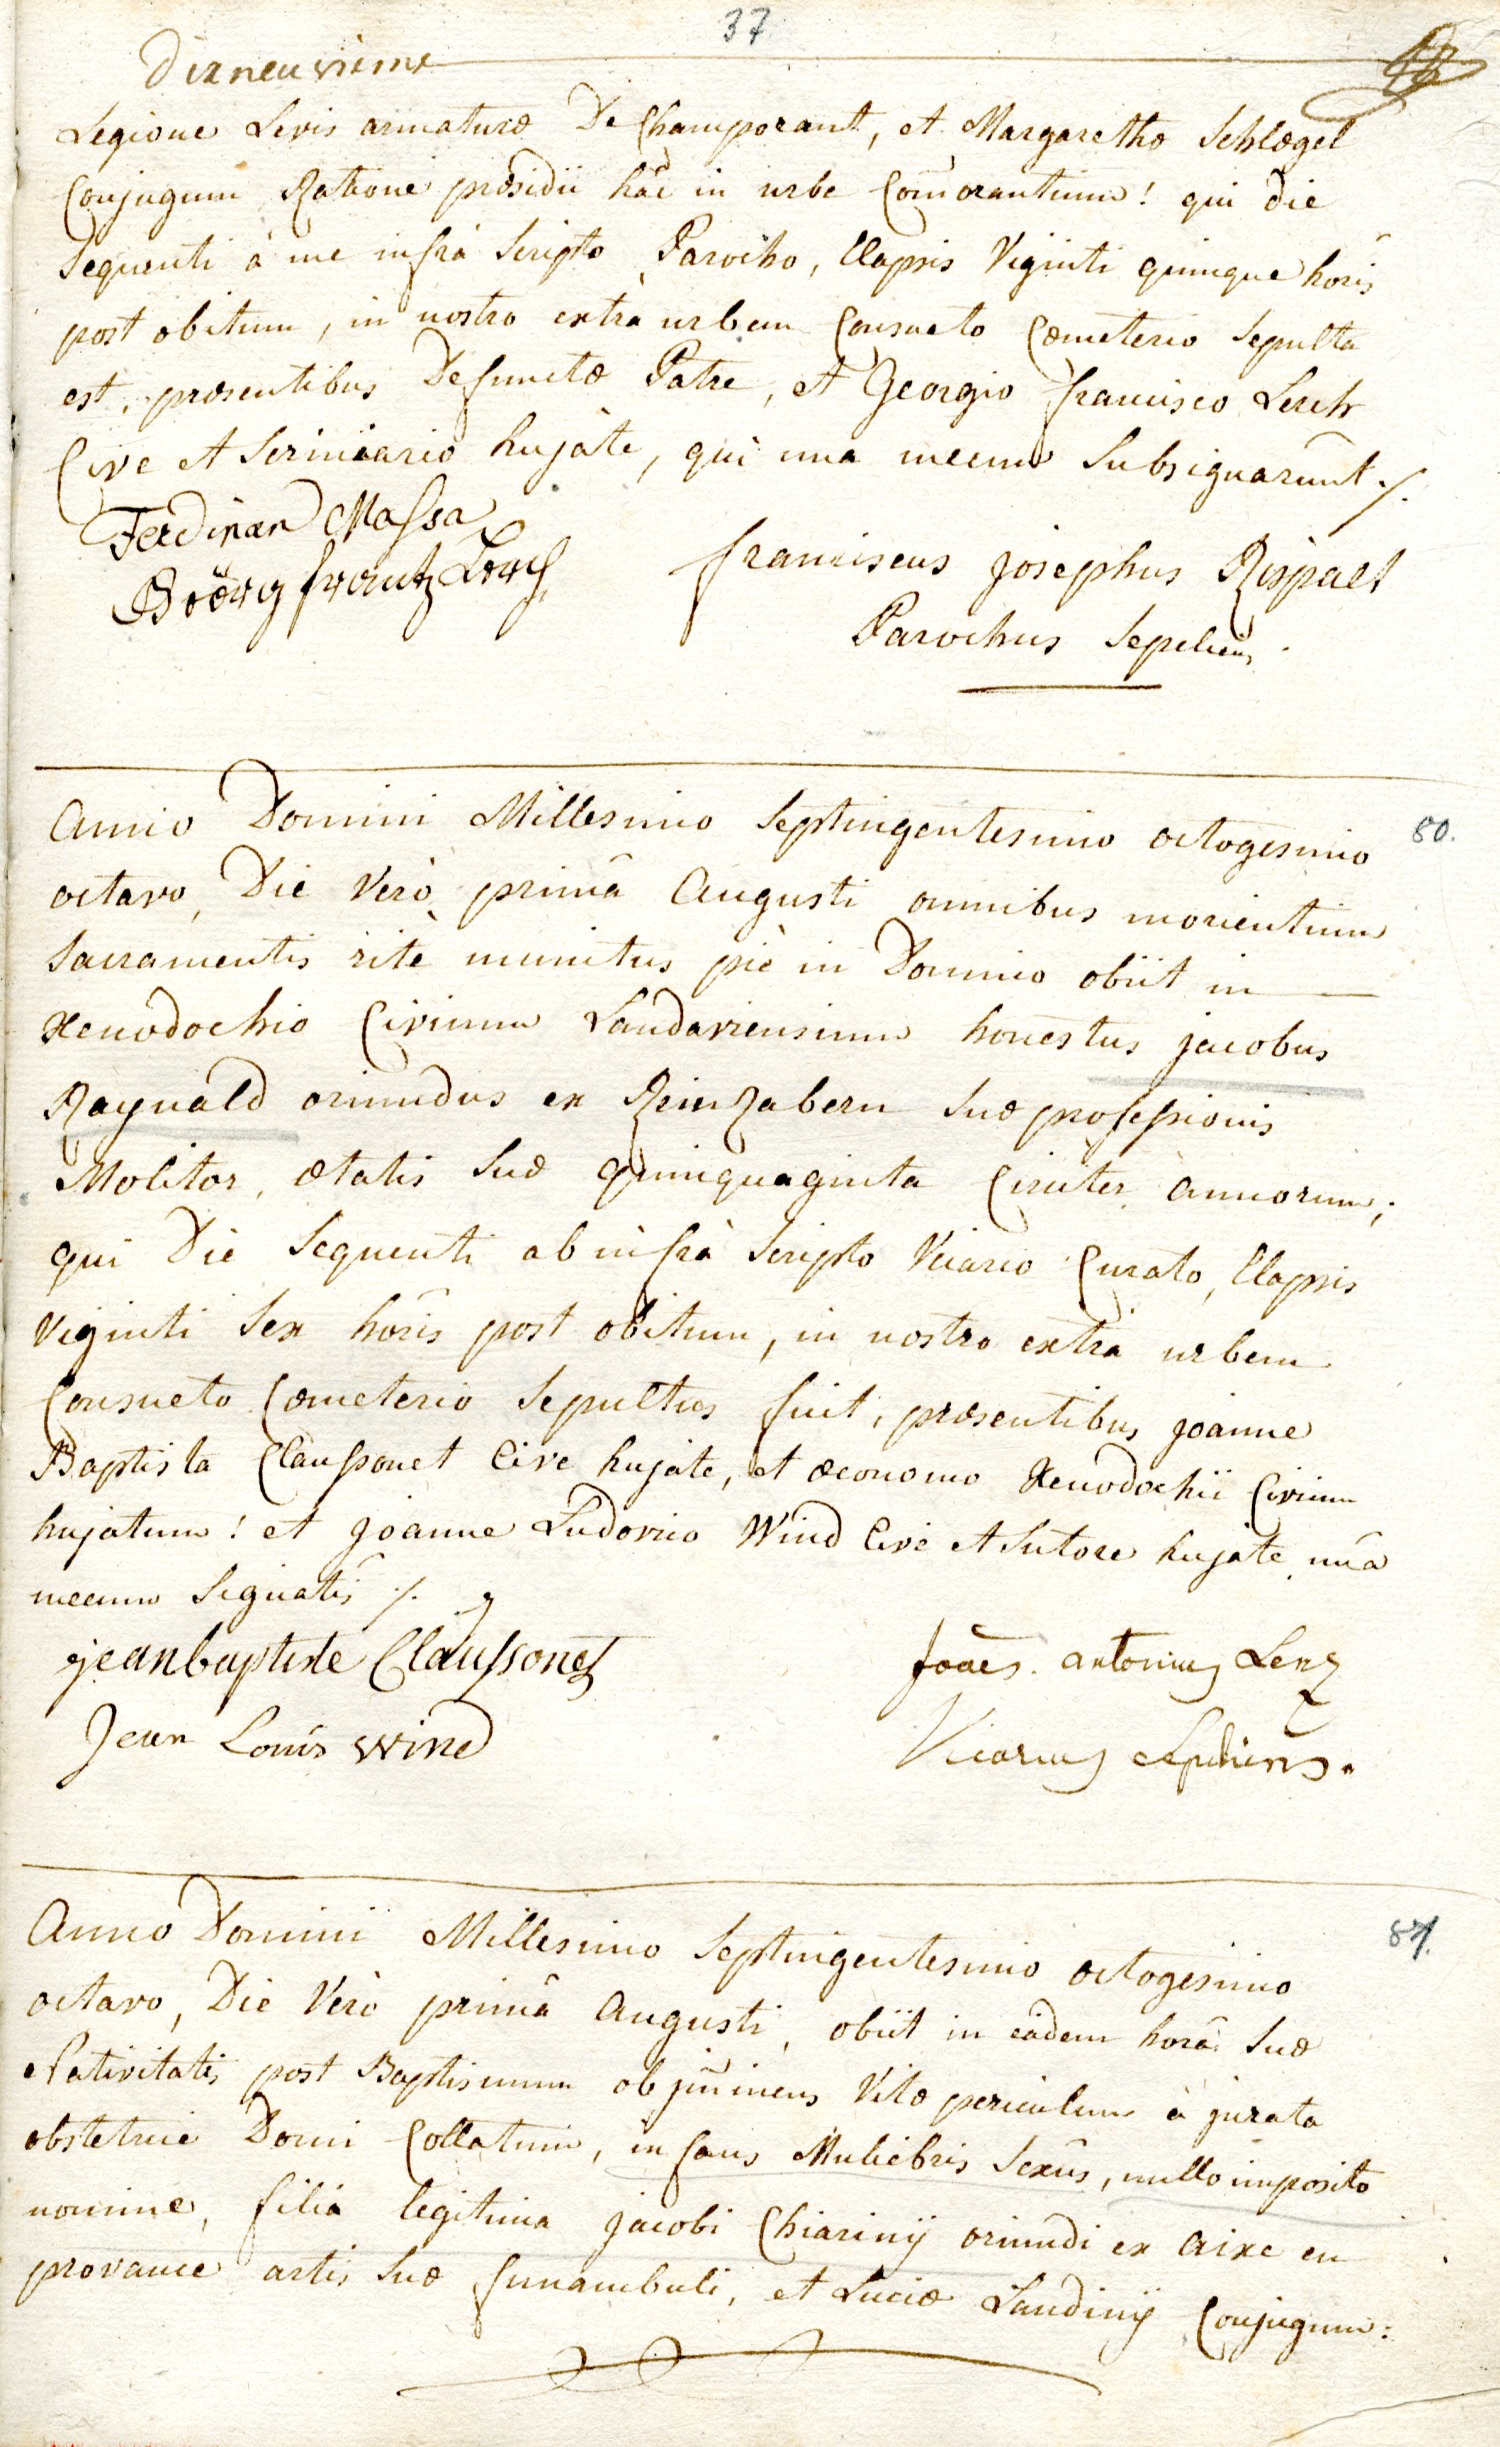 37
Dixneuvieme
Legione Levis armaturæ De Champorant, et Margarethæ Schlœgel
Conjugum Ratione præsidii hâc in urbe Com̄orantium! qui die
Sequenti à me infrà Scripto Parocho, Elapsis Viginti quinque horis
post obitum, in nostro extrà urbem Consueto Cœmeterio Sepulta
est, præsentibus Defunctæ Patre, et Georgio francisco Lerch
Cive et Scriniario hujate, qui una mecum Subsignarunt ./.
Ferdinan Massa
Geörg frantz Lerch
franciscus josephus Rispalt
Parochus Sepeliens.
80.
Anno Domini Millesimo Septingentesimo octogesimo
octavo, Die Verò primâ Augusti omnibus morientium
Sacramentis ritè munitus piè in Domino obiit in
Xenodochio Civium Landaviensium honestus jacobus
Raynald oriundus ex Rinzabern suæ professionis
Molitor, ætatis Suæ quinquaginta Circiter annorum;
qui Die Sequenti ab infrà Scripto Vicario Curato, Elapsis
Viginti Sex horis post obitum, in nostro extrà urbem
Consueto Cœmeterio Sepultus fuit, præsentibus joanne
Baptista Claussonet Cive hujate, et œconomo Xenodochii Civium
hujatum! et joanne Ludovico Wind Cive et Sutore hujate unâ
mecum Signatis ./.
jean baptiste Claussonet
Jean Louis Wind
Joaēs. antonius Lenz
Vicarius Sepeliens.
81.
Anno Domini Millesimo Septingentesimo octogesimo
octavo, Die Verò primâ Augusti, obiit in eâdem horâ Suæ
Nativitatis post Baptismum ob jm̄inens Vitæ periculum à jurata
obstetrice Domi Collatum, infans Muliebris Sexûs, nullo imposito
nomine, filia legitima jacobi Chiarinij oriundi ex Aixe en
provance artis Suæ funambuli, et Luciæ Landinij Conjugum: